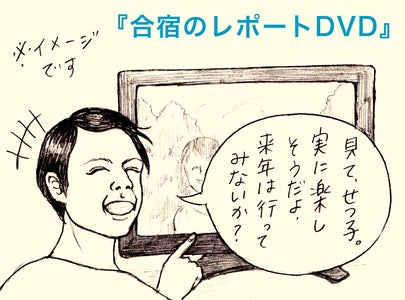 『合宿のレポートDVD』
※イメージ
です
見て、せつ子。
実に楽し
そうだよ。
来年は行って
みないか？